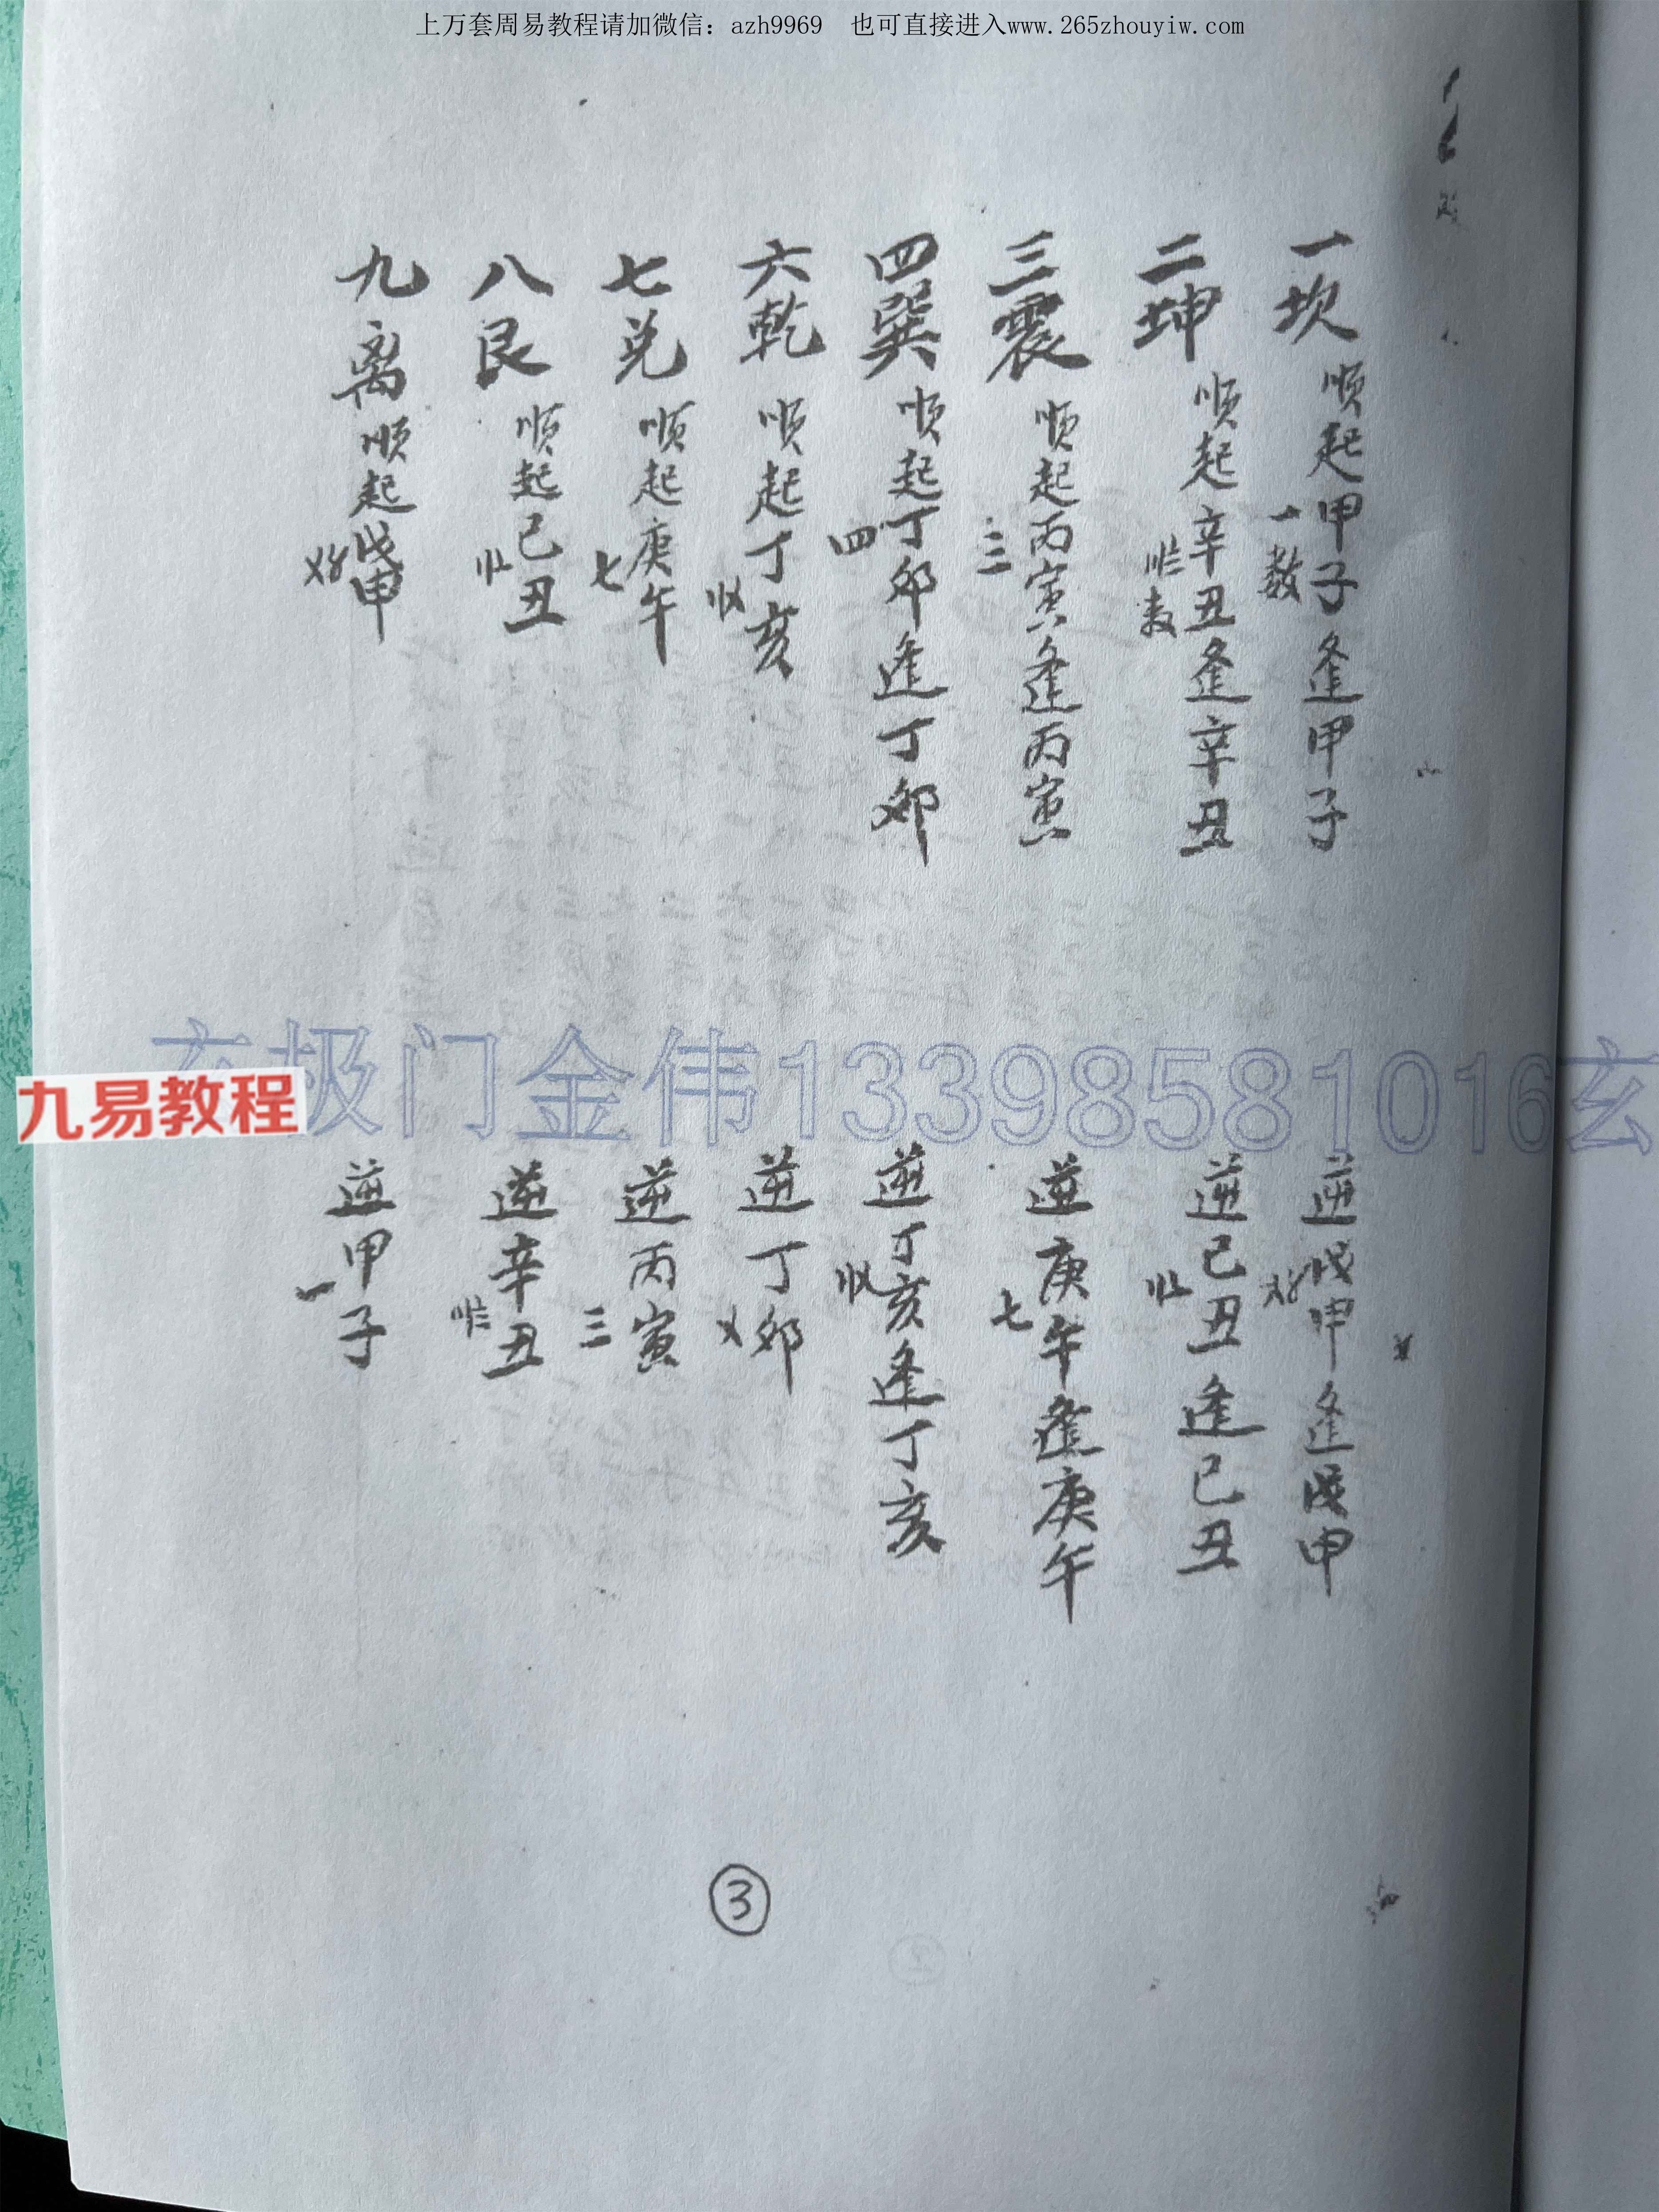 上万套周易教程请加微信：azh9969　也可直接进入www.265zhouyiw.com
一坎 顺起甲子逢甲子 一数
逆戊甲逢戊甲
二坤 顺起辛丑逢辛丑
逆己丑逢己丑
三震 顺起丙寅逢丙寅 三
逆庚午逢庚午 七
四巽 顺起丁卯逢丁卯 四
逆丁亥逢丁亥
六乾 顺起丁亥
逆丁卯
七兑 顺起庚午 七
逆丙寅 三
八艮 顺起己丑
逆辛丑
九离 顺起戊申
逆甲子 一
玄极门金伟13398581016玄
九易教程
③